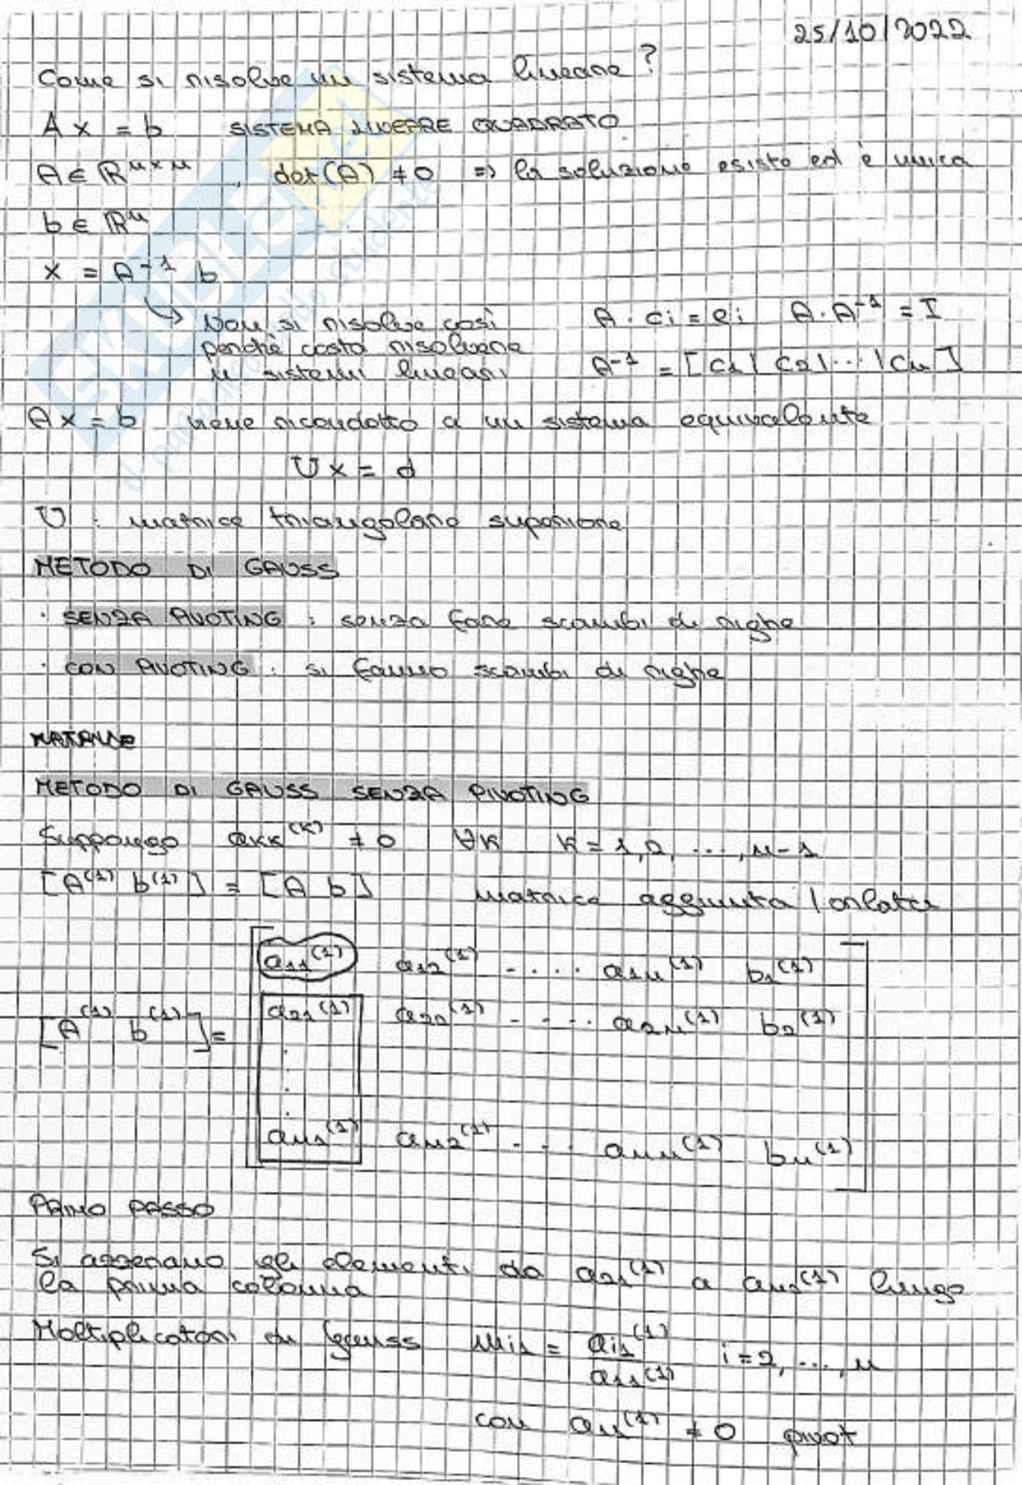 25/10/2022
Come si risolve un sistema lineare ?
A x = b SISTEMA LINEARE QUADRATO
A ∈ ℝⁿˣⁿ , det(A) ≠ 0 => la soluzione esiste ed è unica
b ∈ ℝⁿ
x = A⁻¹ b
Non si risolve così A · ci = ei A · A⁻¹ = I
perché costa risolvere
n sistemi lineari A⁻¹ = [c1 | c2 | ... | cn]
A x = b viene ricondotto a un sistema equivalente
U x = d
U : matrice triangolare superiore
METODO DI GAUSS
· SENZA PIVOTING : senza fare scambi di righe
· CON PIVOTING : si fanno scambi di righe
METODO DI GAUSS SENZA PIVOTING
Suppongo akk⁽ᵏ⁾ ≠ 0 ∀k k = 1,2, ..., n-1
[A⁽¹⁾ b⁽¹⁾] = [A b] matrice aggiunta / orlata
a11⁽¹⁾ a12⁽¹⁾ - ... a1n⁽¹⁾ b1⁽¹⁾
[A⁽¹⁾ b⁽¹⁾] = a21⁽¹⁾ a22⁽¹⁾ - ... a2n⁽¹⁾ b2⁽¹⁾
an1⁽¹⁾ an2⁽¹⁾ - ... ann⁽¹⁾ bn⁽¹⁾
PRIMO PASSO
Si azzerano gli elementi da a21⁽¹⁾ a an1⁽¹⁾ lungo
la prima colonna
Moltiplicatori di Gauss mi1 = ai1⁽¹⁾ / a11⁽¹⁾ i = 2, ..., n
con a11⁽¹⁾ ≠ 0 pivot